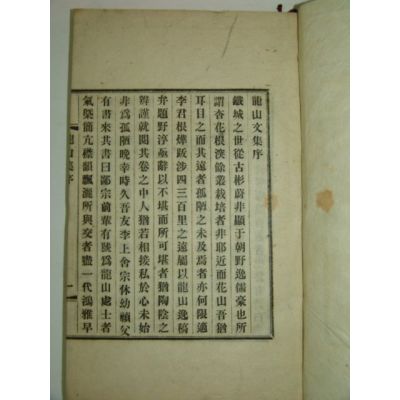 龍山文集序
鐵城之世從古彬蔚非顯于朝野逸儒豪也所
謂杏花根溪餘叢栽培者非耶近而花山吾猶
耳目之而其遠者孤陋之未及焉者亦何限適
李君根燁跋涉四三百里之遠屬以龍山逸稿
弁題野淳藐辭以不堪而所可堪者猶陶陰之
辨謹就閱其卷之中人猶若相接私於心未始
非爲孤陋晚幸時久吾友李上舍宗休幼禎父
有書來其書曰鄙宗前輩有號爲龍山處士者
氣槩簡亢襟韻飄灑所與交者盡一代鴻雅早
龍山集序
一